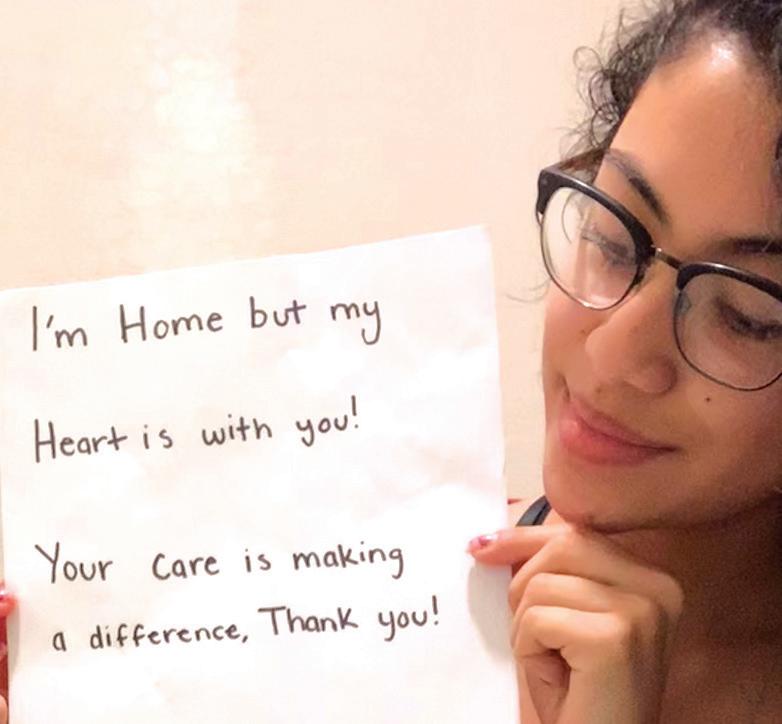 I'm Home but my
Heart is with you!
Your care is making
a difference, Thank you!